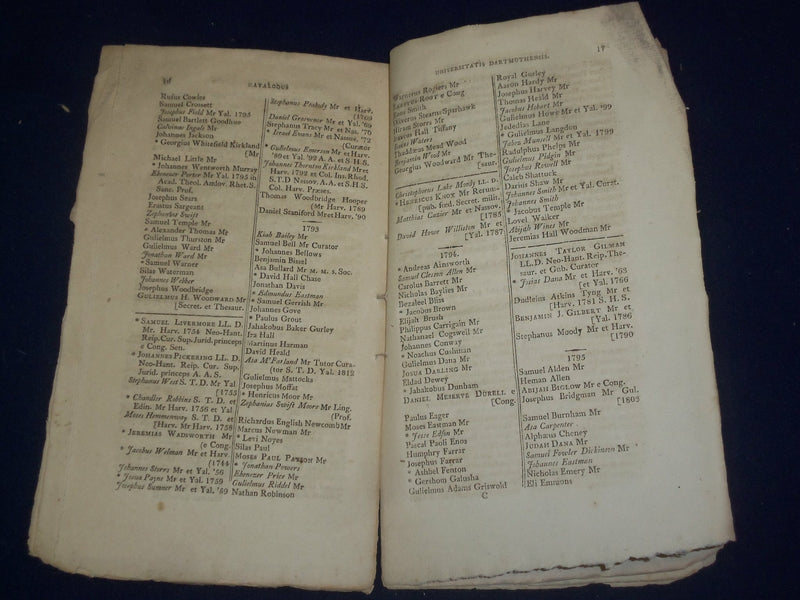 16 CATALOGUS
Rufus Cowles
Samuel Crossett
Josephus Field Mr Yal. 1795
Samuel Bartlett Goodhue
Calvinus Ingals Mr
Johannes Jackson
* Georgius Whitefield Kirkland
[Mr
Michael Little Mr
* Johannes Wentworth Murray
Ebenezer Porter Mr Yal. 1795 in
Acad. Theol. Andov. Rhet. S.
Sanc. Prof.
Josephus Sears
Erastus Sargeant
Zephaniah Swift
Samuel Temple Mr
* Alexander Thomas Mr
Gulielmus Thurston Mr
Gulielmus Ward Mr
Jonathan Ward Mr
* Samuel Warner
Silas Waterman
Johannes Webber
Josephus Woodbridge
GULIELMUS H. WOODWARD Mr
[Secret. et Thesaur.
* SAMUEL LIVERMORE LL. D.
Mr. Harv. 1754 Neo-Hant.
Reip. Cur. Sup. Jurid. princeps
e Cong. Sen.
* JOHANNES PICKERING LL. D.
Neo-Hant. Reip. Cur. Sup.
Jurid. princeps A. A. S.
Stephanus West S. T. D. Mr Yal
[1755
* Chandler Robbins S. T. D. et
Edin. Mr Harv. 1756 et Yal
Moses Hemmenway S. T. D. et
[Harv. Mr Harv. 1758
* JEREMIAS WADSWORTH Mr
[e Cong.
* Jacobus Welman Mr et Harv
[1744
Johannes Storrs Mr et Yal. '56
* Josua Payne Mr et Yal. 1759
Josephus Sumner Mr et Yal. '59
Stephanus Peabody Mr et Harv.
[1769
Daniel Grosvenor Mr et Yal. '69
Stephanus Tracy Mr et Nas. '70
* Israel Evans Mr et Nassov. '72
(Curator
* Gulielmus Emerson Mr et Harv.
'89 et Yal. '92 A. A. et S. H. S.
Johannes Thornton Kirkland Mr et
Harv. 1792 et Col. Ins. Rhod.
S. T. D Nassov. A. A. et S. H. S.
Col. Harv. Præses.
Thomas Woodbridge Hooper
(Mr Harv. 1789
Daniel Staniford Mr et Harv. '90
1793
Kiah Bailey Mr
Samuel Bell Mr Curator
* Johannes Bellows
Benjamin Bissel
Asa Bullard Mr M. M. S. Soc.
* David Hall Chase
Jonathan Davis
* Edmundus Eastman
* Samuel Gerrish Mr
Johannes Gove
* Paulus Grout
Jahakobus Baker Gurley
Ira Hall
Martinus Harman
David Heald
Asa M'Farland Mr Tutor Cura-
(tor S. T. D. Yal. 1812
Gulielmus Mattocks
Josephus Moffat
* Henricus Moor Mr
Zephanias Swift Moore Mr Ling.
(Prof.
Richardus English Newcomb Mr
Marcus Newman Mr
* Levi Noyes
Silas Paul
MOSES PAUL PAYSON Mr
* Jonathan Powers
Ebenezer Price Mr
Gulielmus Riddel Mr
Nathan Robinson
UNIVERSITATIS DARTMUTHENSIS. 17
Warnerus Rogers Mr
Lazarus Root e Cong
Ezra Smith
Oliverus Steams Sparhawk
Hiram Storrs Mr
Hall Tiffany
Waters
Thaddæus Mead Wood
Benjamin Wood Mr
Georgius Woodward Mr The-
[saur.
Christophorus Lake Moody LL. D.
* HENRICUS KNOX Mr Rerum-
[pub. fœd. Secret. milit.
Matthias Cazier Mr et Nassov.
[1785
David Howe Williston Mr et
[Yal. 1787
1794.
* Andreas Ainsworth
Samuel Glesson Allen Mr
Carolus Barrett Mr
Nicholas Baylies Mr
Bezabeel Bliss
* Jacobus Brown
Elijah Brush
Philippus Carrigain Mr
Nathanael Cogswell Mr
Johannes Conway
* Noachus Cushman
Gulielmus Dana Mr
JOSUA DARLING Mr
Eldad Dewey
* Jahakobus Dunham
DANIEL MESERVE DURELL e
[Cong.
Paulus Eager
Moses Eastman Mr
* Jesse Edson Mr
Pascal Paoli Enos
Humphry Farrar
Josephus Farrar
* Ashbel Fenton
* Gershom Galusha
Gulielmus Adams Griswold
C
Royal Gurley
Aaron Hardy Mr
Josephus Harvey Mr
Thomas Heald Mr
Jacobus Hobart Mr
Gulielmus Howe Mr et Yal. '99
Jedediás Lane
* Gulielmus Langdon
Tabea Munsell Mr et Yal. 1799
Radulphus Phelps Mr
Gulielmus Pidgin Mr
Josephus Rowell Mr
Caleb Shattuck
Darius Shaw Mr
Johannes Smith Mr et Yal. Curat.
Johannes Smith
* Jacobus Temple Mr
Lovel Walker
Abijah Wines Mr
Jeremias Hall Woodman Mr
JOHANNES TAYLOR GILMAN
LL. D. Neo-Hant. Reip. The-
saur. et Gub. Curater
* Jsaias Dana Mr et Harv. '63
[et Yal. 1766
Dudleius Atkins Tyng Mr et
[Harv. 1781 S. H. S.
BENJAMIN J. GILBERT Mr et
[Yal. 1786
Stephanus Moody Mr et Harv.
[1790
1795
Samuel Alden Mr
Heman Allen
ABIJAH BIGLOW Mr e Cong.
Josephus Bridgman Mr Gul.
[1803
Samuel Burnham Mr
Asa Carpenter
Alphæus Cheney
JUDAH DANA Mr
Samuel Fowler Dickinson Mr
Johannes Eastman
Nicholas Emery Mr
Eli Emmons